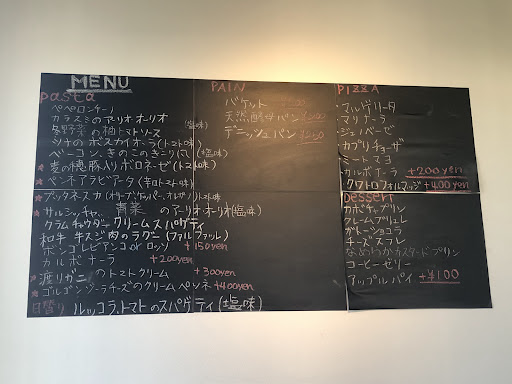 MENU
pasta
ペペロンチーノ
カラスミのアーリオオーリオ(塩味)
冬野菜の柚トマトソース
シナのボスカイオーラ(トマト味)
ベーコン、きのこのきこり風(塩味)
★麦の穂豚入りボロネーゼ(トマト味)
★ペンネアラビアータ(辛口トマト味)
★プッタネスカ(オリーブ、ケッパー、オレガノ)トマト味
★サルシッチャ、青菜のアーリオオーリオ(塩味)
クラムチャウダークリームスパゲティ
和牛牛スジ肉のラグー(ファルファッレ)
ボンゴレビアンコ or ロッソ +150yen
カルボナーラ +200yen
★渡りガニのトマトクリーム +300yen
★ゴルゴンゾーラチーズのクリームペンネ +400yen
日替り ルッコラ、トマトのスパゲティ(塩味)
PAIN
バケット
天然酵母パン
デニッシュパン
PIZZA
・マルゲリータ
・マリナーラ
・ジェノベーゼ
・カプリチョーザ
・ミートマヨ
・カルボナーラ +200yen
・クワトロフォルマッジ +400yen
Dessert
カボチャプリン
クレームブリュレ
ガトーショコラ
チーズスフレ
なめらかカスタードプリン
コーヒーゼリー
アップルパイ +¥100